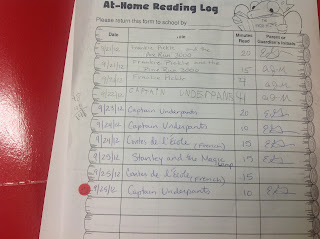 At-Home Reading Log
Please return this form to school by
Date Minutes Read Parent or Guardian's Initials
Frankie Pickle and the
Pine Run 3000 20
Frankie Pickle and the
Pine Run 3000 15
Frankie Pickle 7
CAPTAIN UNDERPANTS
9/23/12 Captain Underpants 20
9/24/12 Captain Underpants 10
9/24/12 Contes de l'École (French) 15
9/25/12 Stanley and the Magic Lamp 15
9/25/12 Contes de l'École (French) 15
9/25/12 Captain Underpants 10